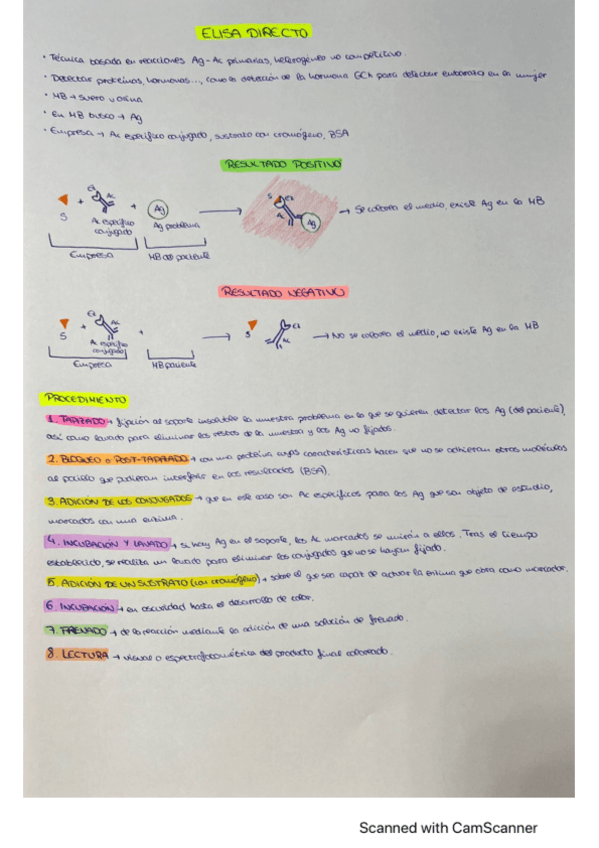 ELISA DIRECTO
· Técnica basada en reacciones Ag-Ac primarias, heterogéneo no competitivo.
· Detectar proteínas, hormonas..., como la detección de la hormona GCh para detectar embarazo en la mujer
· MB → suero u orina
· En MB busco → Ag
· Empresa → Ac específico conjugado, sustrato con cromógeno, BSA
RESULTADO POSITIVO
S + Ez Ac + Ag → S Ez Ac Ag → Se colorea el medio, existe Ag en la MB
Ac específico conjugado
Ag problema
Empresa
MB del paciente
RESULTADO NEGATIVO
S + Ez Ac + → S Ez Ac → No se colorea el medio, no existe Ag en la MB
Ac específico conjugado
Empresa
MB paciente
PROCEDIMIENTO
1. TAPIZADO → fijación al soporte insoluble la muestra problema en la que se quieren detectar los Ag (del paciente),
así como lavado para eliminar los restos de la muestra y los Ag no fijados.
2. BLOQUEO o POST-TAPIZADO → con una proteína cuyas características hacen que no se adhieran otras moléculas
al pocillo que pudieran interferir en los resultados (BSA).
3. ADICIÓN DE LOS CONJUGADOS → que en este caso son Ac específicos para los Ag que son objeto de estudio,
marcados con una enzima.
4. INCUBACIÓN Y LAVADO → si hay Ag en el soporte, los Ac marcados se unirán a ellos. Tras el tiempo
establecido, se realiza un lavado para eliminar los conjugados que no se hayan fijado.
5. ADICIÓN DE UN SUSTRATO (con cromógeno) → sobre el que sea capaz de actuar la enzima que obra como marcador.
6. INCUBACIÓN → en oscuridad hasta el desarrollo de color.
7. FRENADO → de la reacción mediante la adición de una solución de frenado.
8. LECTURA → visual o espectrofotométrica del producto final coloreado.
Scanned with CamScanner